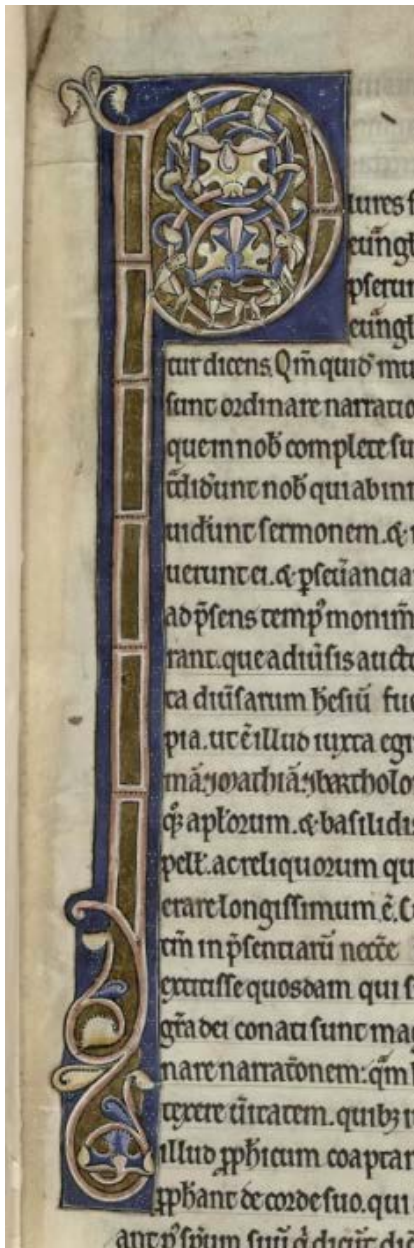 P
lures f
euāgl
pserun
euāgl
tur dicens. Qm̄ quid' mu
sunt ordinare narratio
que in nob̄ complete su
t̄did'unt nob̄ qui ab ini
uid'unt sermonem. &
uerunt ei. & p̱seuancia
ad p̄sens temp' monim̄
rant. que a diūsis aucto
ta diūsarum hesiū fue
pia. ut ē illud iuxta egi
mā ⁊ mathiā ⁊ bartholo
q̄ aplorum. & basilidis
pell'. ac reliquorum qu
erare longissimum ē. C
tm̄ in p̄sentiarū necc̄e
extitisse quosdam qui s
gr̄a dei conati sunt mag
nare narratōnem: qm̄
texere ūitatem. quibꝫ i
illud ꝓph'icum coaptar
ꝓphant de corde suo. qui
ant p' sp̄m suū q̄ dicūt dic